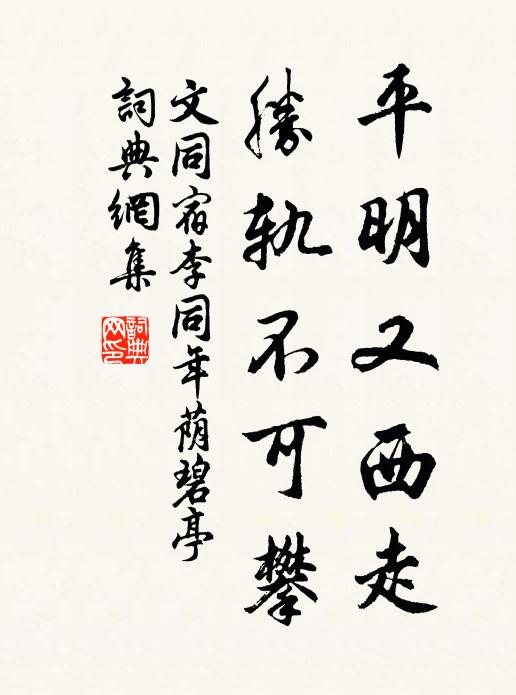 平明又西走
勝軌不可攀
文同宿李同年荫碧亭
詞典網集
詞典网印